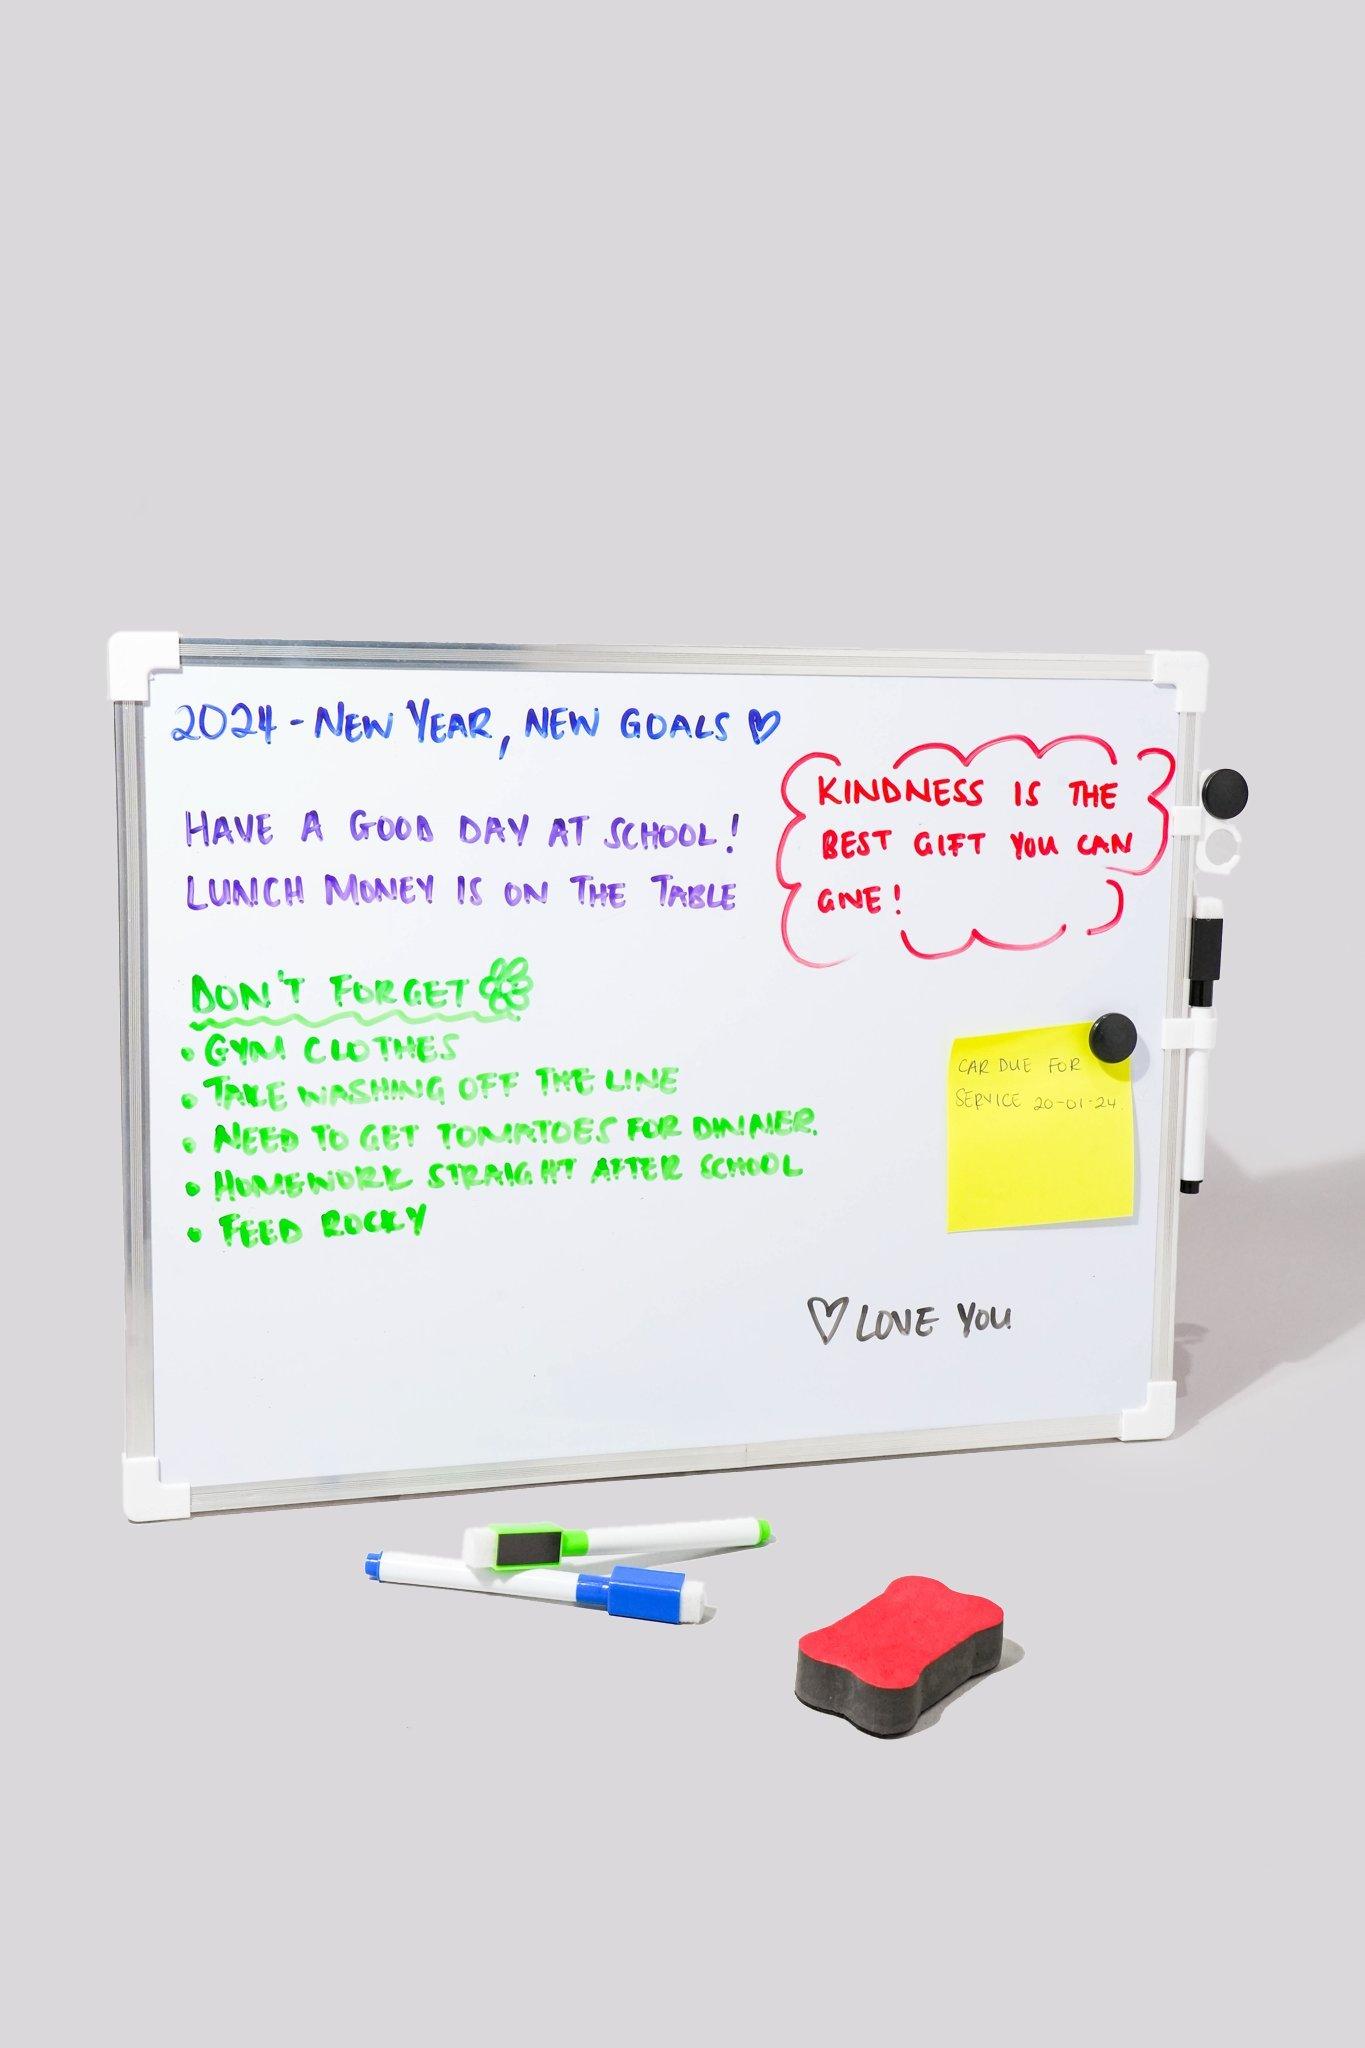 2024 - NEW YEAR, NEW GOALS ♡
HAVE A GOOD DAY AT SCHOOL!
LUNCH MONEY IS ON THE TABLE
KINDNESS IS THE
BEST GIFT YOU CAN
GIVE!
DON'T FORGET
• GYM CLOTHES
• TAKE WASHING OFF THE LINE
• NEED TO GET TOMATOES FOR DINNER.
• HOMEWORK STRAIGHT AFTER SCHOOL
• FEED ROCKY
CAR DUE FOR
SERVICE 20-01-24.
♡ LOVE YOU